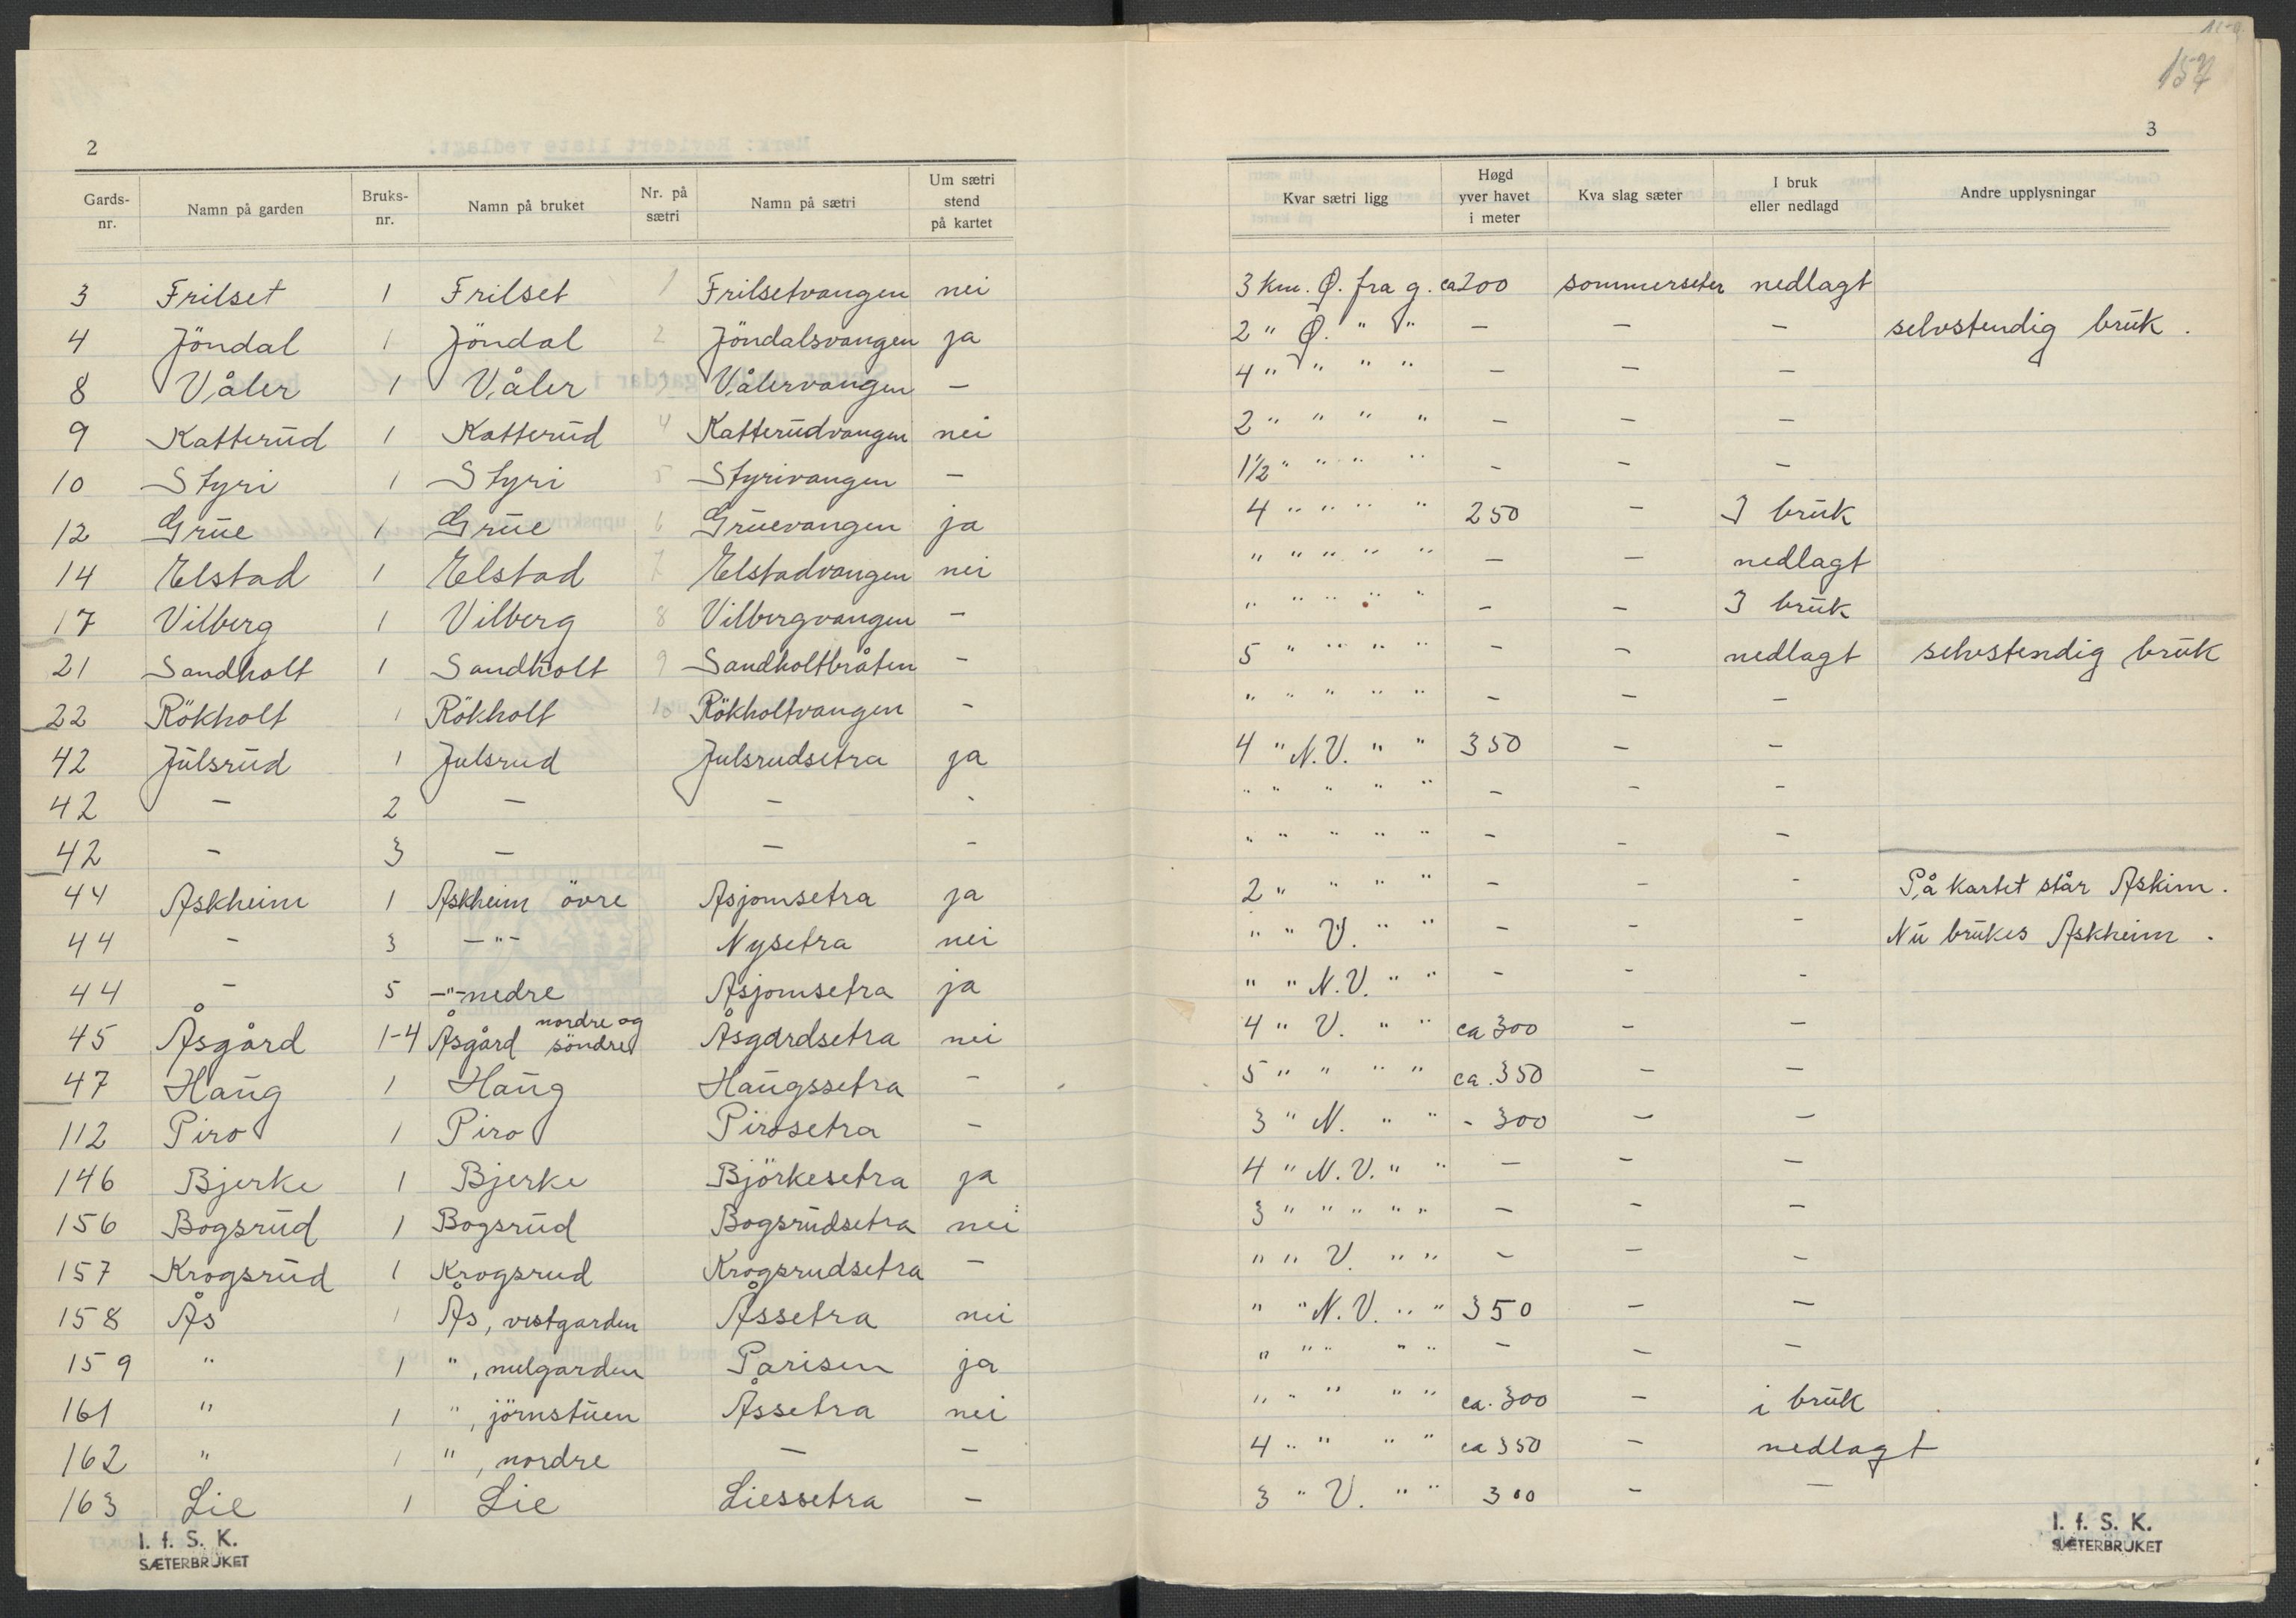 157
2
Gards-nr. | Namn på garden | Bruks-nr. | Namn på bruket | Nr. på sætri | Namn på sætri | Um sætri stend på kartet
3 | Frilset | 1 | Frilset | 1 | Frilsetvangen | nei
4 | Jöndal | 1 | Jöndal | 2 | Jöndalsvangen | ja
8 | Våler | 1 | Våler | 3 | Vålervangen | –
9 | Katterud | 1 | Katterud | 4 | Katterudvangen | nei
10 | Styri | 1 | Styri | 5 | Styrivangen | –
12 | Grue | 1 | Grue | 6 | Gruevangen | ja
14 | Elstad | 1 | Elstad | 7 | Elstadvangen | nei
17 | Vilberg | 1 | Vilberg | 8 | Vilbergvangen | –
21 | Sandholt | 1 | Sandholt | 9 | Sandholtbråten | –
22 | Rökholt | 1 | Rökholt | 10 | Rökholtvangen | –
42 | Julsrud | 1 | Julsrud | | Julsrudsetra | ja
42 | – | 2 | – | | – | -
42 | – | 3 | – | | – | -
44 | Askheim | 1 | Askheim övre | | Asjomsetra | ja
44 | – | 3 | –"– | | Nysetra | nei
44 | – | 5 | –"– nedre | | Asjomsetra | ja
45 | Åsgård | 1-4 | Åsgård nordre og söndre | | Åsgårdsetra | nei
47 | Haug | 1 | Haug | | Haugssetra | –
112 | Piro | 1 | Piro | | Pirosetra | –
146 | Bjerke | 1 | Bjerke | | Björkesetra | ja
156 | Bogsrud | 1 | Bogsrud | | Bogsrudsetra | nei
157 | Krogsrud | 1 | Krogsrud | | Krogsrudsetra | –
158 | Ås | 1 | Ås, vestgarden | | Åssetra | nei
159 | " | 1 | ", melgarden | | Parisen | ja
161 | " | 1 | ", jörnstuen | | Åssetra | nei
162 | " | 1 | ", nordre | | – | –
163 | Lie | 1 | Lie | | Liessetra | –
I. f. S. K.
SÆTERBRUKET
3
Kvar sætri ligg | Høgd yver havet i meter | Kva slag sæter | I bruk eller nedlagd | Andre upplysningar
3 km. Ø. fra g. | ca 200 | sommerseter | nedlagt
2 " Ø. " " | – | – | – | selvstendig bruk.
4 " " " " | – | – | –
2 " " " " | – | – | –
1½ " " " " | – | – | –
4 " " " " | 250 | – | I bruk
" " " " " | – | – | nedlagt
" " " " " | – | – | I bruk
5 " " " " | – | – | nedlagt | selvstendig bruk
" " " " " | – | – | –
4 " N.V. " " | 350 | – | –
" " " " " | – | – | –
" " " " " | – | – | –
2 " " " " | – | – | – | På kartet står Askim.
" " V. " " | – | – | – | Nu brukes Askheim.
" " N.V. " " | – | – | –
4 " V. " " | ca 300 | – | –
5 " " " " | ca. 350 | – | –
3 " N. " " | - 300 | – | –
4 " N.V. " " | – | – | –
3 " " " " | – | – | –
" " V. " " | – | – | –
" " N.V. " " | 350 | – | –
" " " " " | – | – | –
" " " " " | ca. 300 | – | i bruk
4 " " " " | ca 350 | – | nedlagt
3 " V. " " | 300 | – | –
I. f. S. K.
SÆTERBRUKET